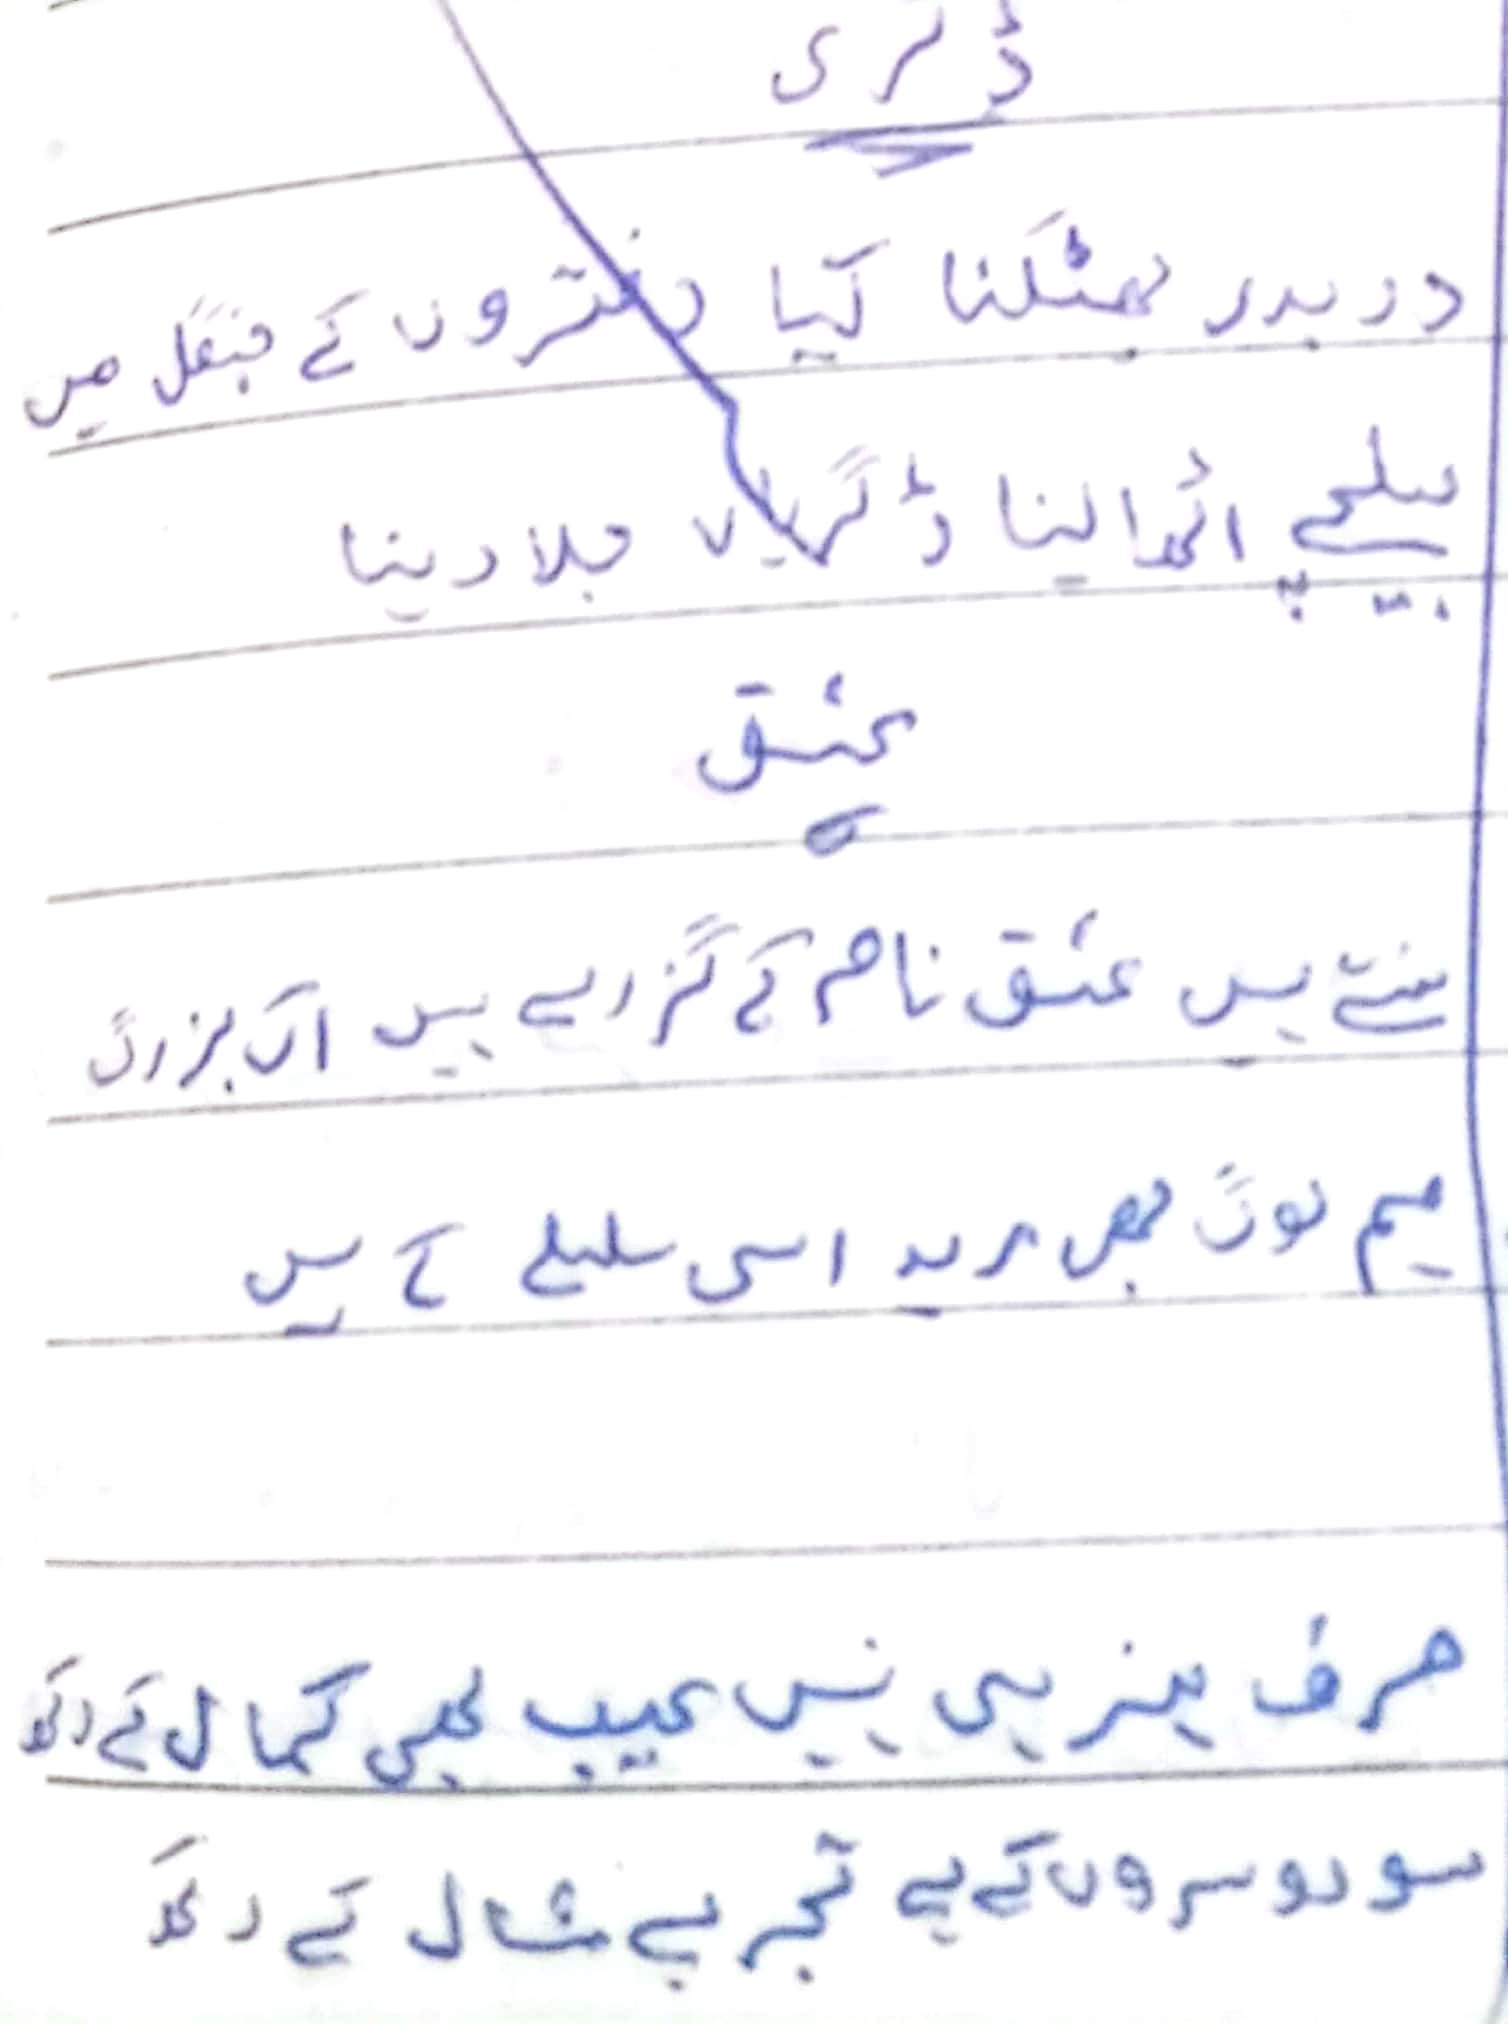 ڈگری
در بدر بھٹکنا کیا دفتروں کے جنگل میں
بیلچے اٹھا لینا ڈگریاں جلا دینا
عشق
سنتے ہیں عشق نام کے گزرے ہیں اک بزرگ
ہم لوگ بھی مرید اسی سلسلے کے ہیں
صرف ہنر ہی نہیں عیب بھی کمال کے رکھ
سو دوسروں کے لیے تجربے مثال کے رکھ